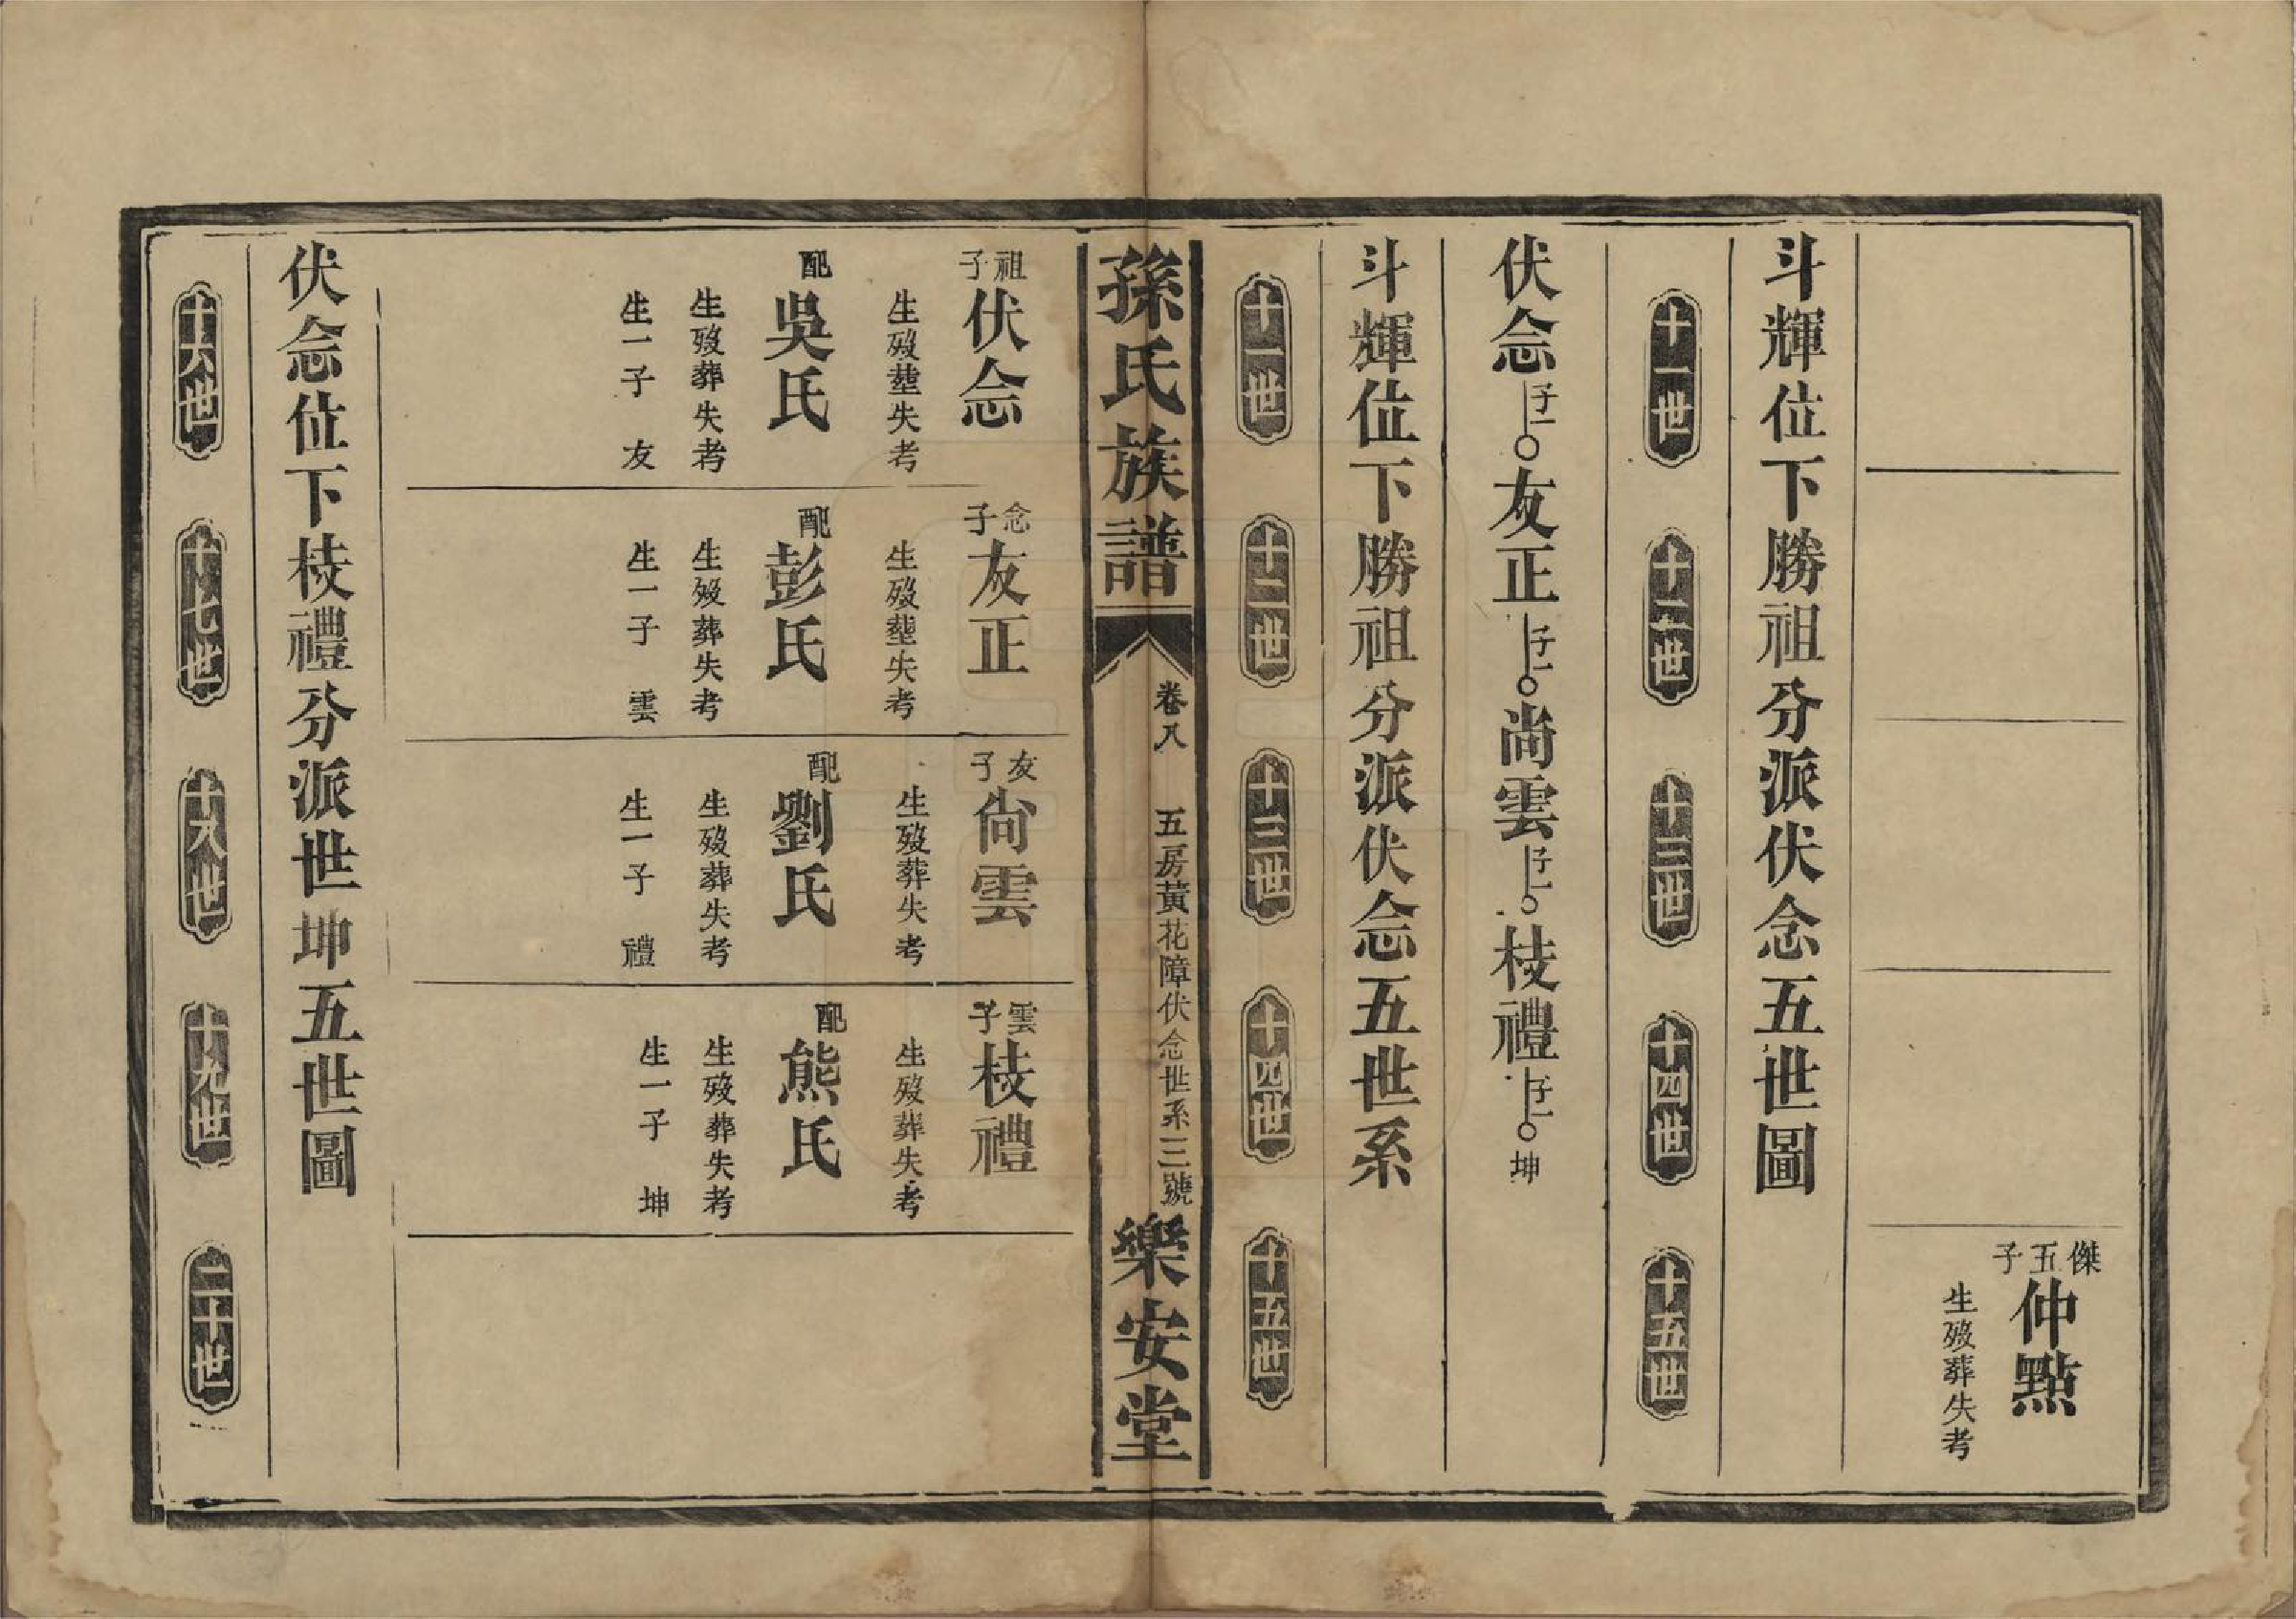 傑五子
仲點
生歿葬失考
斗輝位下勝祖分派伏念五世圖
十一世
十二世
十三世
十四世
十五世
伏念子一友正子一尚雲子一枝禮子一坤
斗輝位下勝祖分派伏念五世系
十一世
十二世
十三世
十四世
十五世
孫氏族譜
卷八
五房黃花障伏念世系三號
樂安堂
祖子
伏念
生歿塟失考
配
吳氏
生歿葬失考
生一子 友
念子
友正
生歿塟失考
配
彭氏
生歿葬失考
生一子 雲
友子
尙雲
生歿葬失考
配
劉氏
生歿葬失考
生一子 禮
雲子
枝禮
生歿葬失考
配
熊氏
生歿葬失考
生一子 坤
伏念位下枝禮分派世坤五世圖
十六世
十七世
十八世
十九世
二十世